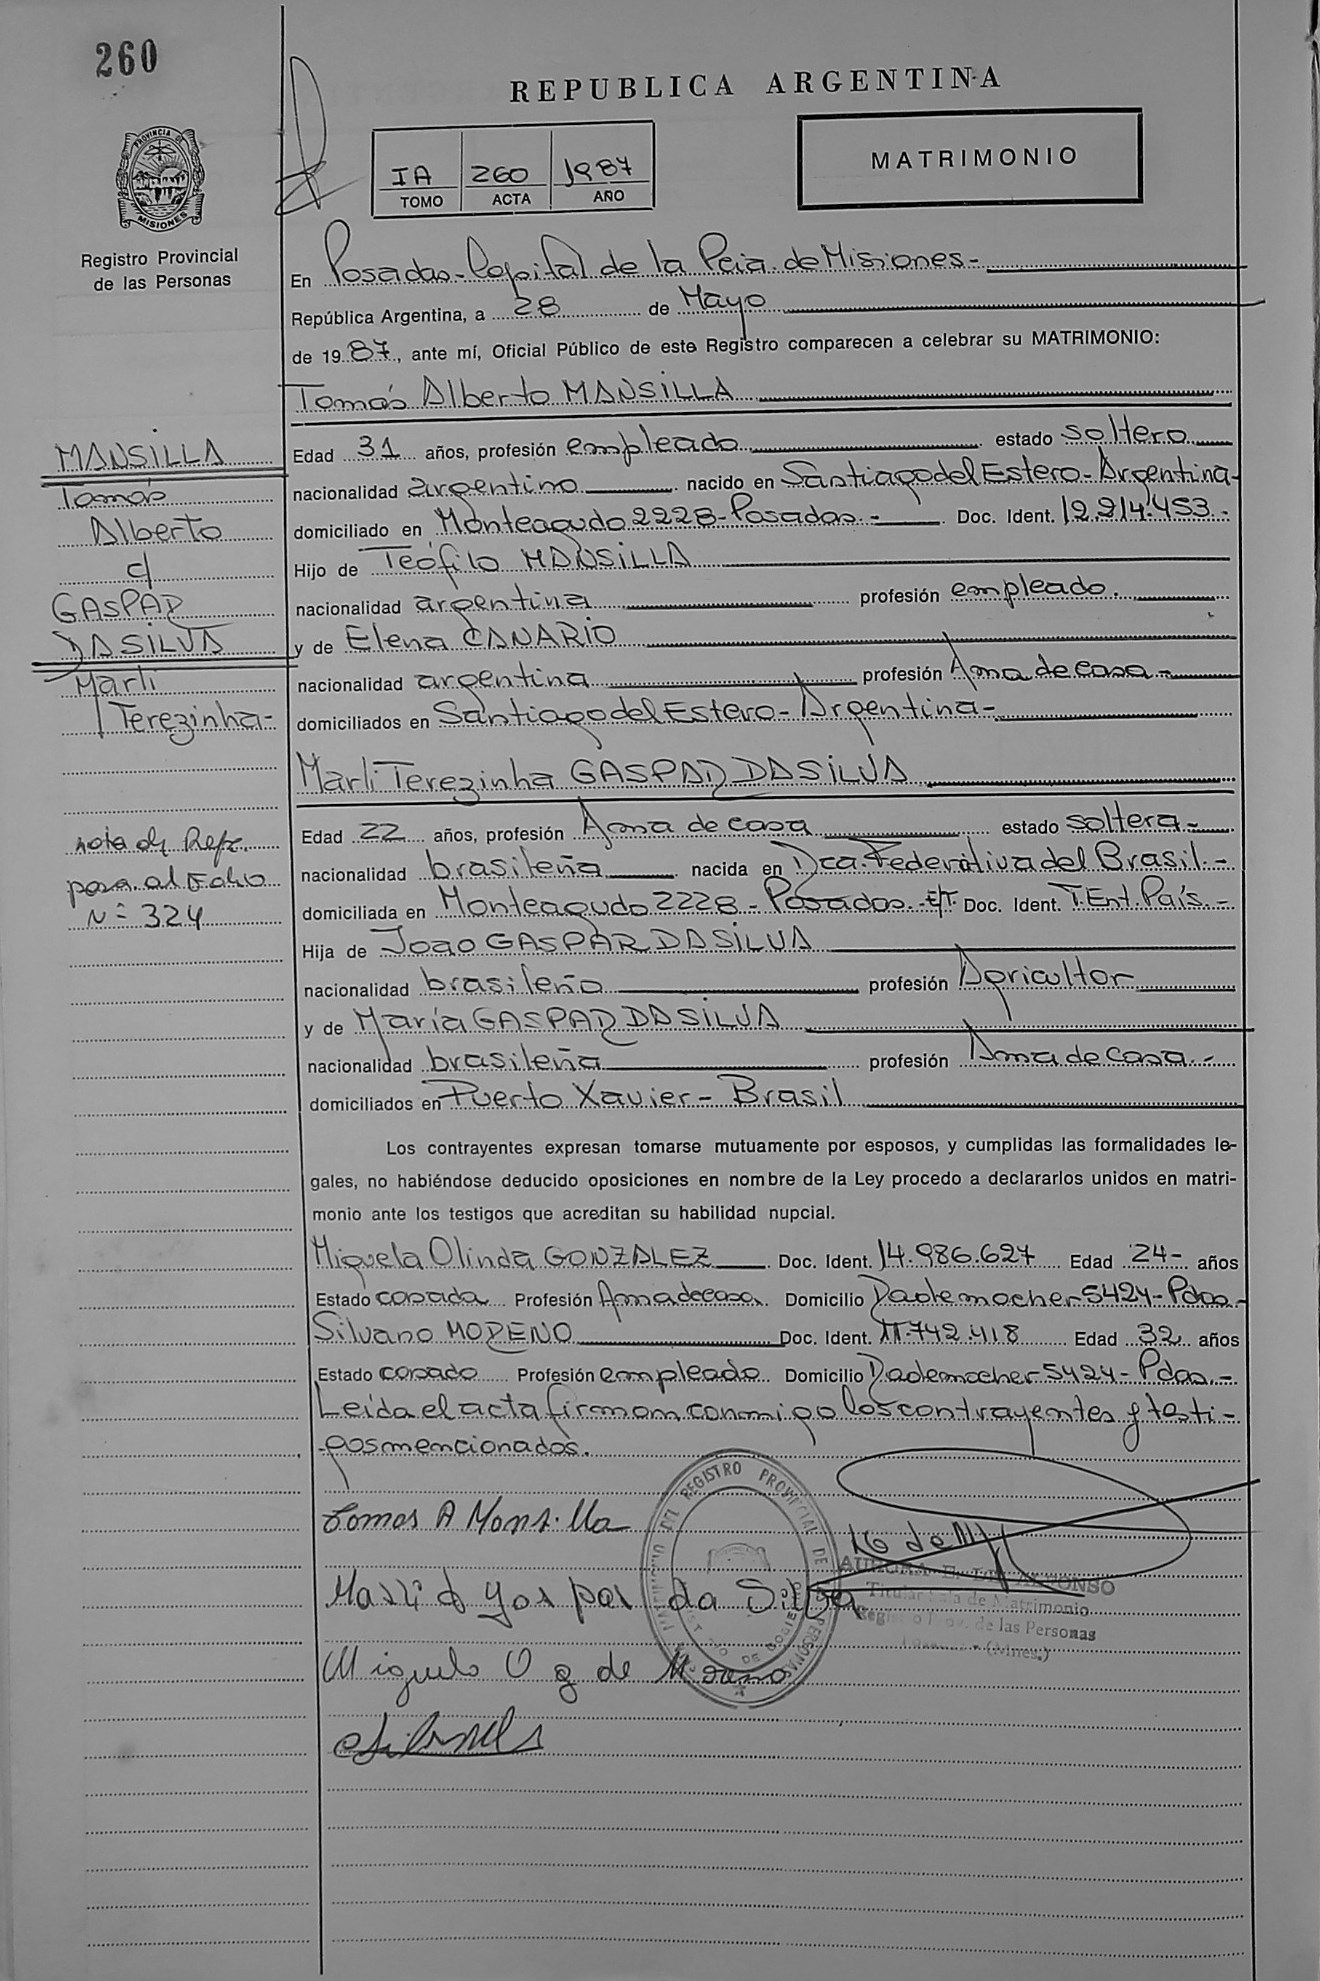 260
REPUBLICA ARGENTINA
PROVINCIA DE MISIONES
Registro Provincial
de las Personas
IA 260 1987
TOMO ACTA AÑO
MATRIMONIO
En Posadas-Capital de la Pcia. de Misiones-
República Argentina, a 28 de Mayo
de 1987, ante mí, Oficial Público de este Registro comparecen a celebrar su MATRIMONIO:
Tomás Alberto MANSILLA
Edad 31 años, profesión empleado estado soltero
nacionalidad argentino nacido en Santiago del Estero-Argentina-
domiciliado en Monteagudo 2228-Posadas.- Doc. Ident. 12.914.453.-
Hijo de Teófilo MANSILLA
nacionalidad argentina profesión empleado.
y de Elena CANARIO
nacionalidad argentina profesión Ama de casa-
domiciliados en Santiago del Estero-Argentina-
Marli Terezinha GASPAR DA SILVA
Edad 22 años, profesión Ama de casa estado soltera-
nacionalidad brasileña nacida en Rca. Federativa del Brasil.-
domiciliada en Monteagudo 2228-Posadas.- E/T. Doc. Ident. T.Ent. País.-
Hija de Joao GASPAR DA SILVA
nacionalidad brasileño profesión Agricultor
y de María GASPAR DA SILVA
nacionalidad brasileña profesión Ama de casa.-
domiciliados en Puerto Xavier-Brasil
Los contrayentes expresan tomarse mutuamente por esposos, y cumplidas las formalidades le-
gales, no habiéndose deducido oposiciones en nombre de la Ley procedo a declararlos unidos en matri-
monio ante los testigos que acreditan su habilidad nupcial.
Miguela Olinda GONZALEZ Doc. Ident. 14.986.627 Edad 24- años
Estado casada Profesión Ama de casa Domicilio Rademacher 5424-Pdas-
Silvano MORENO Doc. Ident. 11.742.418 Edad 32 años
Estado casado Profesión empleado Domicilio Rademacher 5424-Pdas.-
Leída el acta firmam conmigo los contrayentes y testi-
gos mencionados.
MANSILLA
Tomás
Alberto
c/
GASPAR
DA SILVA
Marli
Terezinha-
nota de Refe.
pasa al Folio
Nº 324
Tomas A Mansilla
Marli gaspar da Silva
Miguela O g de Moreno
REGISTRO PROVINCIAL DE
Titular Sala de Matrimonio
Registro Prov. de las Personas
(Mnes.)